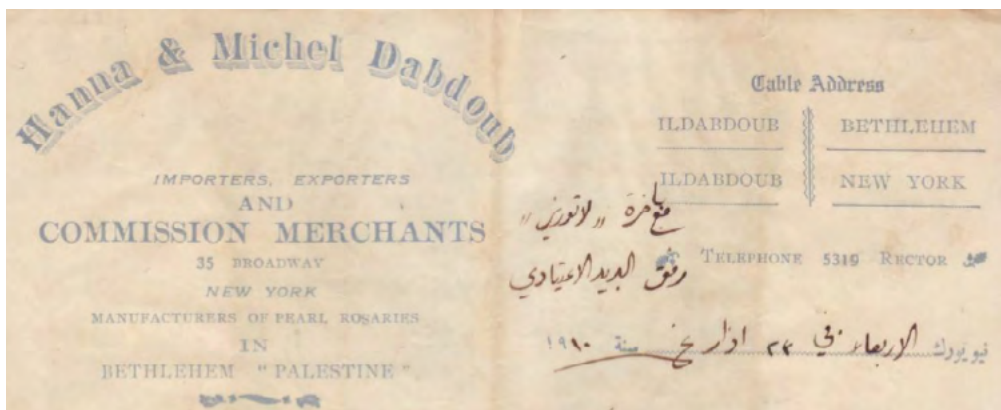 Hanna & Michel Dabdoub
IMPORTERS, EXPORTERS
AND
COMMISSION MERCHANTS
35 BROADWAY
NEW YORK
MANUFACTURERS OF PEARL ROSARIES
IN
BETHLEHEM "PALESTINE"
Cable Address
ILDABDOUB BETHLEHEM
ILDABDOUB NEW YORK
مع باخرة "لاتورين"
TELEPHONE 5319 RECTOR
رفق البريد الاعتيادي
نيويورك الاربعاء في ٢٣ اذار سنة ١٩١٠